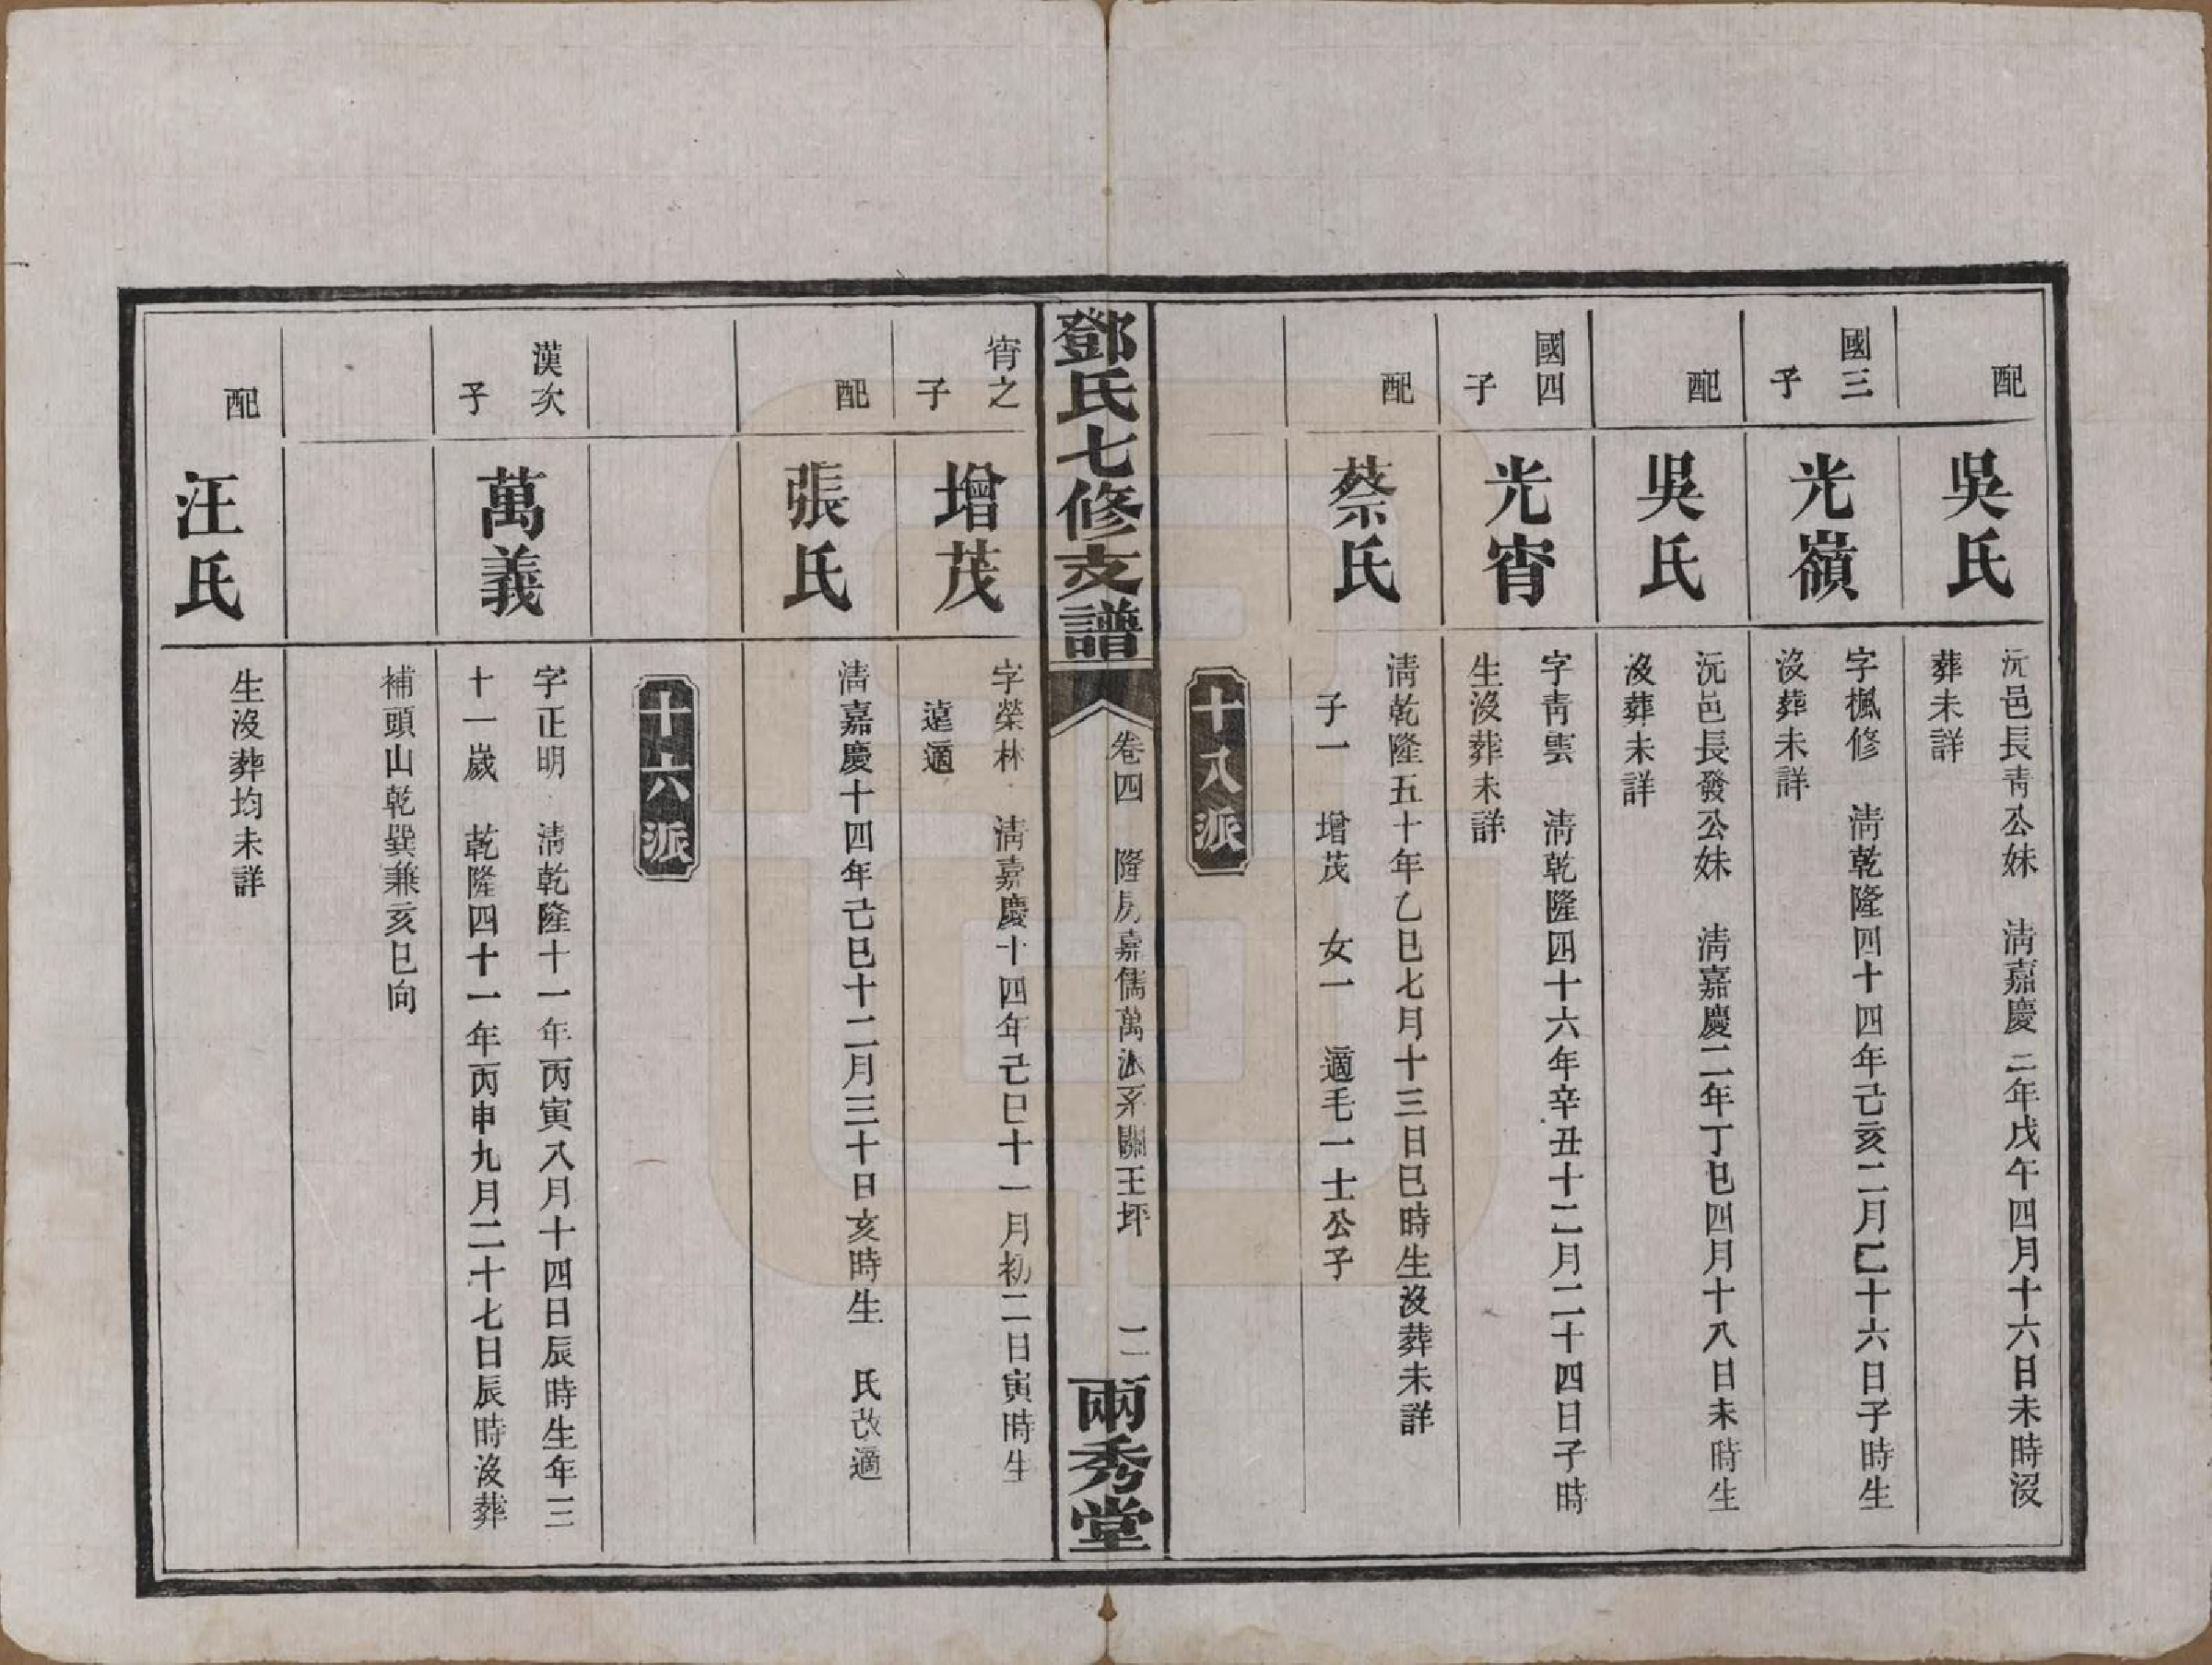 配
吳氏
沅邑長靑公妹　淸嘉慶二年戊午四月十六日未時沒
葬未詳
國三
子
光嶺
字楓修　淸乾隆四十四年己亥二月十六日子時生
沒葬未詳
配
吳氏
沅邑長發公妹　淸嘉慶二年丁巳四月十八日未時生
沒葬未詳
國四
子
光宵
字靑雲　淸乾隆四十六年辛丑十二月二十四日子時
生沒葬未詳
配
蔡氏
淸乾隆五十年乙巳七月十三日巳時生沒葬未詳
子一　增茂　女一　適毛一士公子
十八派
鄧氏七修支譜
卷四　隆房嘉儒萬派系關王坪　二
兩秀堂
宵之
子
增茂
字榮林　淸嘉慶十四年己巳十一月初二日寅時生
遠適
配
張氏
淸嘉慶十四年己巳十二月三十日亥時生　氏改適
十六派
漢次
子
萬義
字正明　淸乾隆十一年丙寅八月十四日辰時生年三
十一歲　乾隆四十一年丙申九月二十七日辰時沒葬
補頭山乾巽兼亥巳向
配
汪氏
生沒葬均未詳